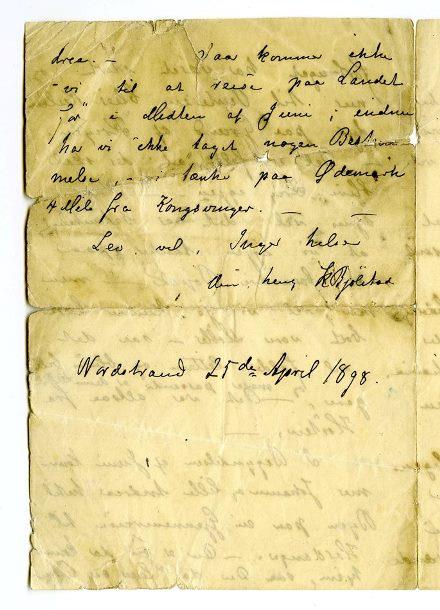 dres. — Vaar komme ikke
- vi til at reise paa Landet
før i Midten af Juni; endnu
har vi ikke taget nogen Bestem
melse, - vi tænke paa Ødemark
4 Mile fra Kongsvinger. — —
Lev vel, Inger hilser
din heng K Kjölstad
Nordstrand 25de April 1898.